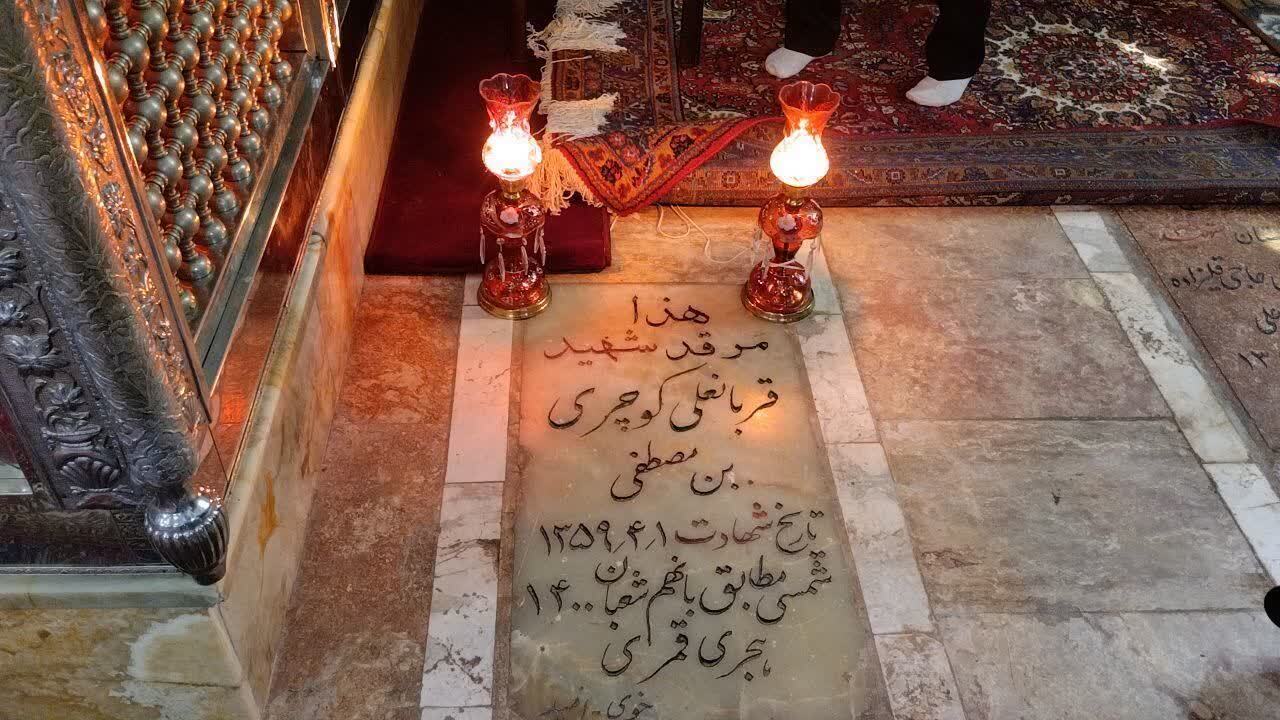 هذا
مرقد شهید
قربانعلی کوچری
بن مصطفی
تاریخ شهادت ۱٫۴٫۱۳۵۹
شمسی مطابق با نهم شعبان ۱۴۰۰
هجری قمری
خوی
حاجی قلیزاده